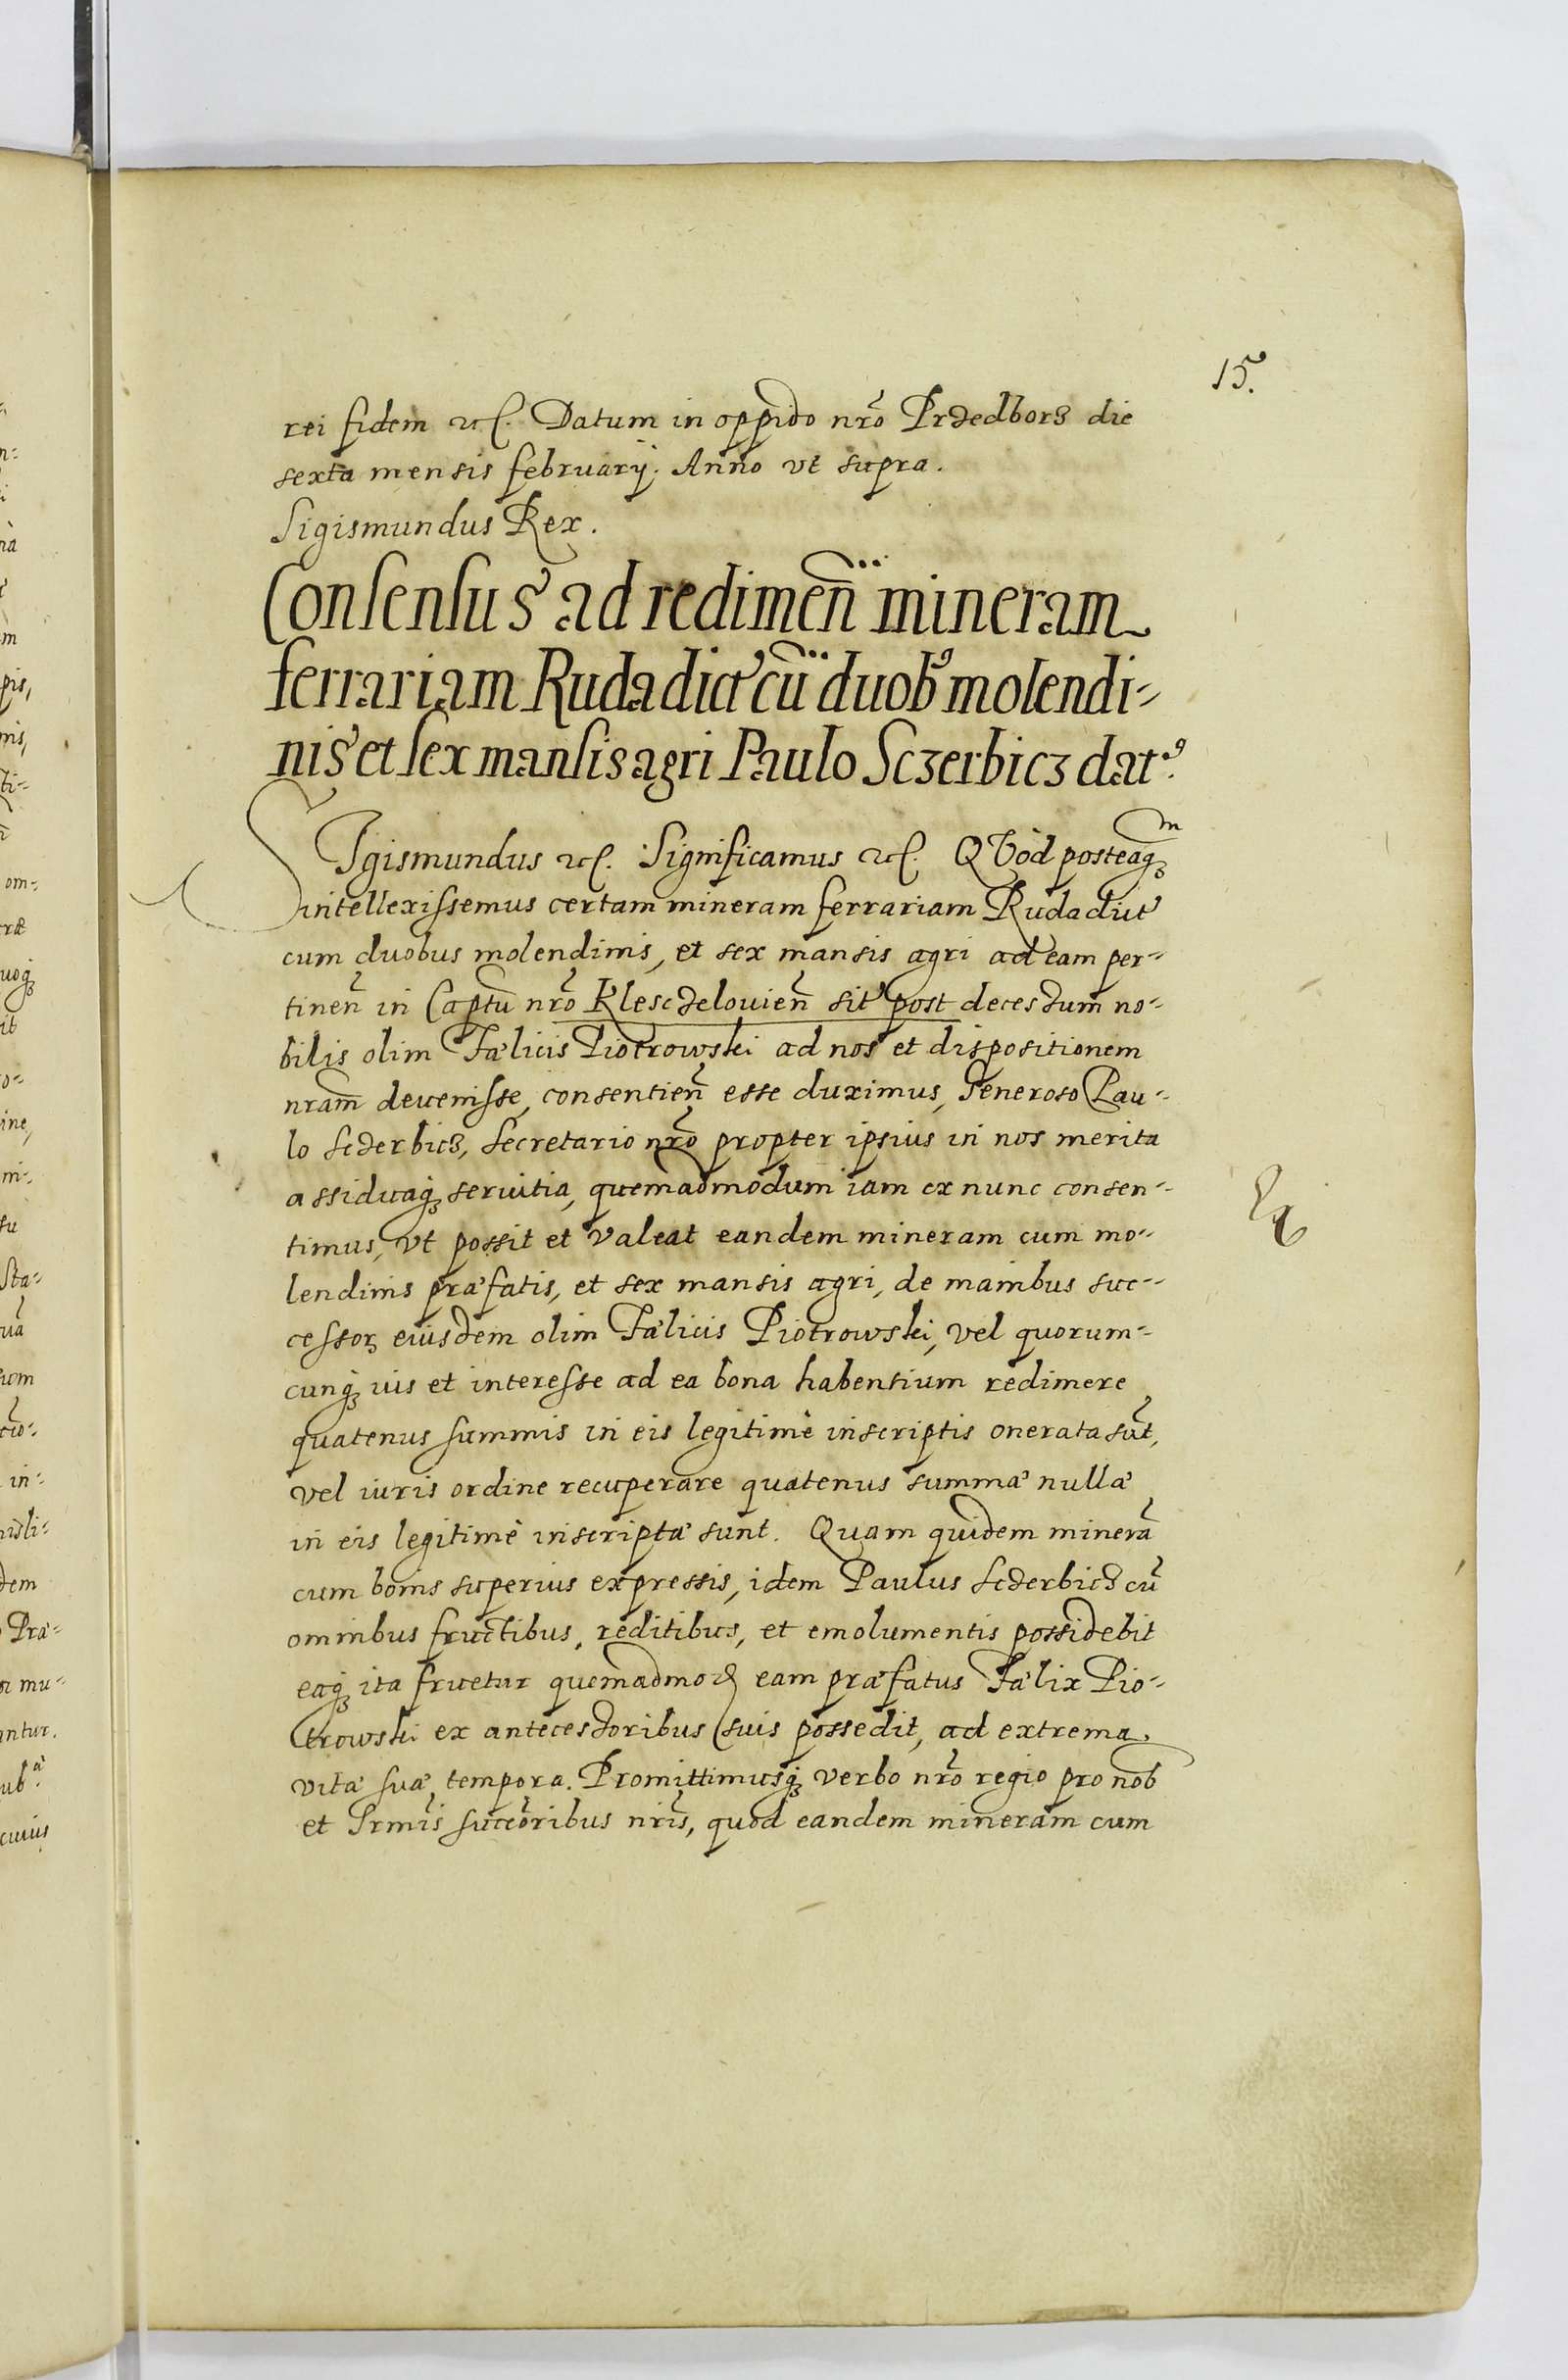 15.
rei fidem etc. Datum in oppido nrõ Przedborz die
sexta mensis februarij. Anno vt supra.
Sigismundus Rex.
Consensus ad redimeñ mineram
ferrariam Ruda dict cũ duobꝰ molendi-
nis et sex mansis agri Paulo Sczerbicz datꝰ.
SIgismundus etc. Significamus etc. QVòd posteaqꝫm
intellexissemus certam mineram ferrariam Ruda dict
cum duobus molendinis, et sex mansis agri ad eam per-
tineñ in Captũ nrõ Klesczelouieñ sit post decessum no-
bilis olim Fælicis Piotrowski ad nos et dispositionem
nram̃ deuenisse, consentieñ esse duximus, Generoso Pau-
lo Sczerbicz, Secretario nrõ propter ipsius in nos merita
assiduaqꝫ seruitia, quemadmodum iam ex nunc consen-
timus, vt possit et valeat eandem mineram cum mo-
lendinis præfatis, et sex mansis agri, de manibus suc-
cessoꝝ eiusdem olim Fælicis Piotrowski, vel quorum-
cunqꝫ ius et interesse ad ea bona habentium redimere
quatenus summis in eis legitimè inscriptis onerata sũt,
vel iuris ordine recuperare quatenus summæ nullæ
in eis legitimè inscriptæ sunt. Quam quidem minerã
cum bonis superius expressis, idem Paulus Sczerbicz cũ
omnibus fructibus, reditibus, et emolumentis possidebit
eaqꝫ ita fruetur quemadmod eam præfatus Fælix Pio-
trowski ex antecessoribus suis possedit, ad extrema
vitæ suæ tempora. Promittimusqꝫ verbo nrõ regio pro nob
et Srmis̃ succõribus nris̃, quod eandem mineram cum